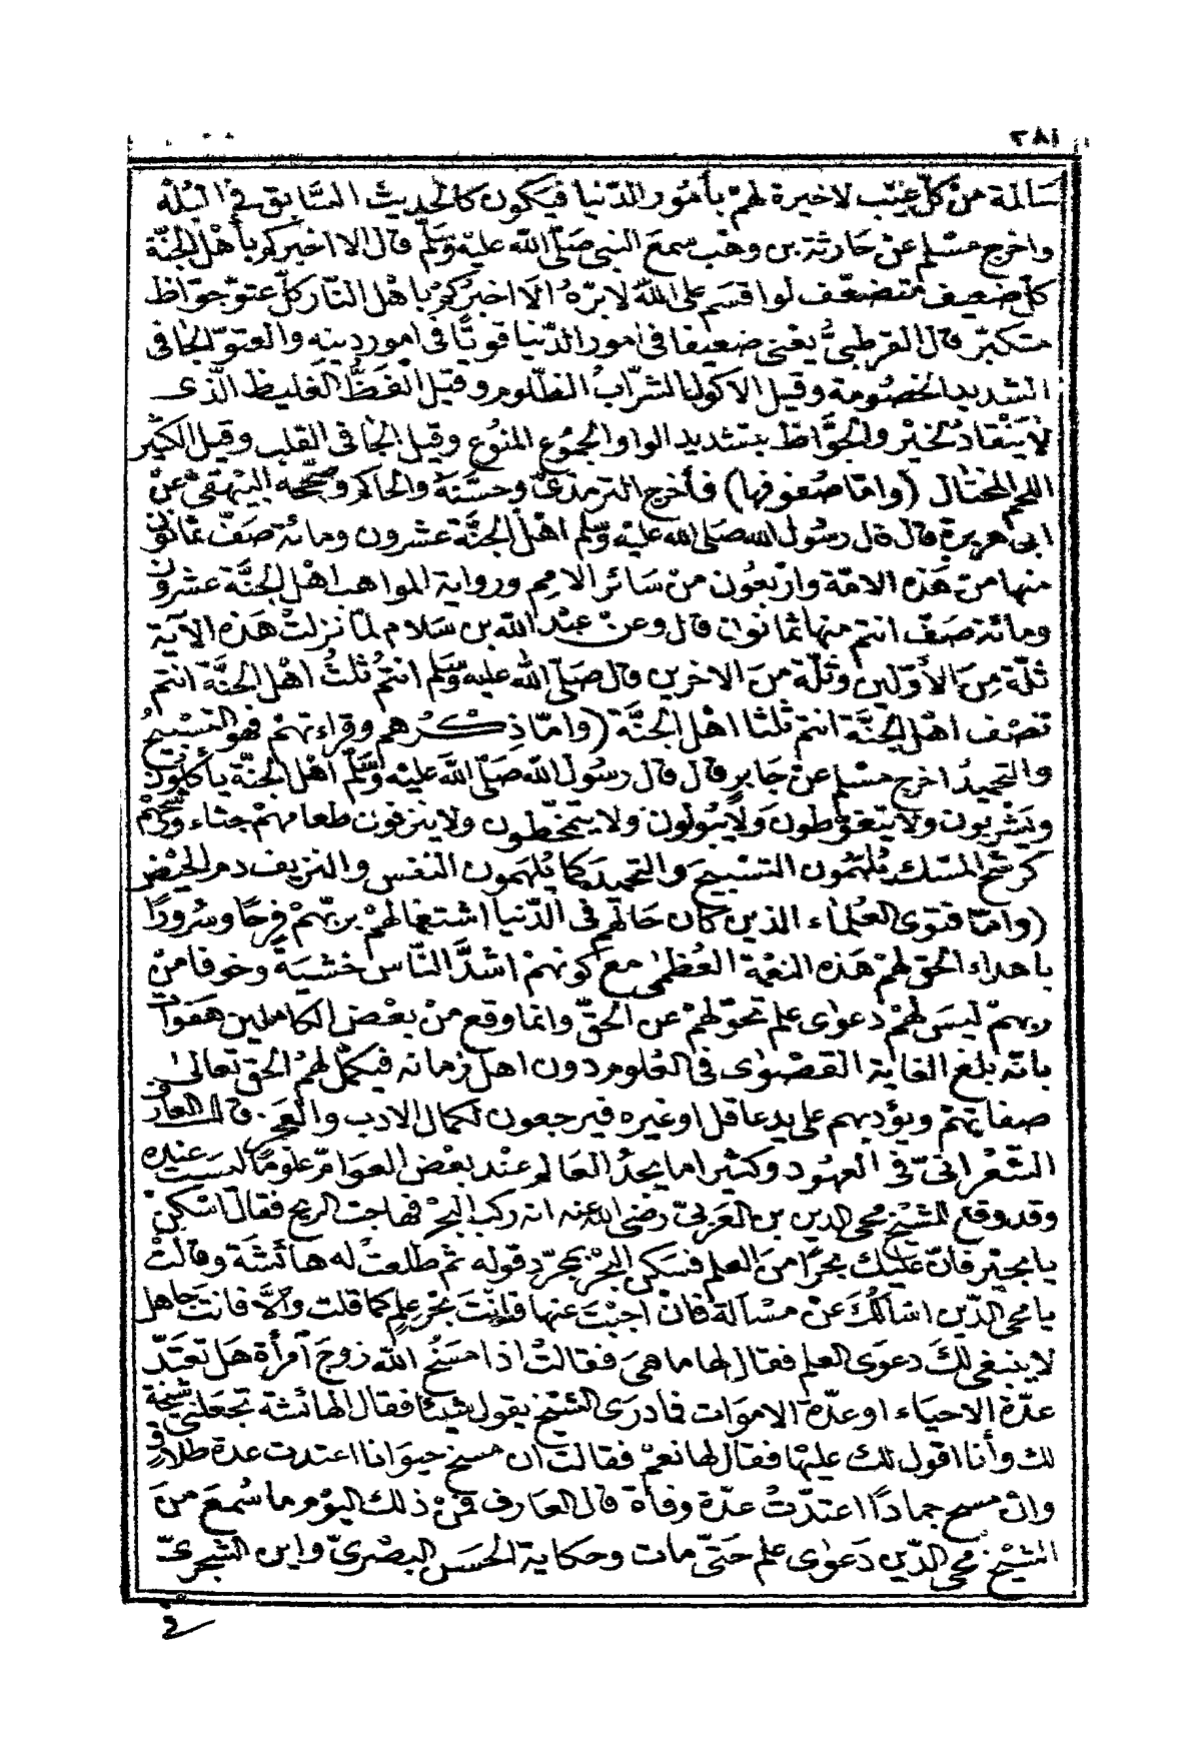 ٣٨١
سَالمة منْ كلّ عيْب لاخيرة لهمْ بأمُور الدّنيا فيَكون كالحديث السَّابق في البُله
واخرج مسْلم عنْ حَارثة بن وهْب سمعَ النبي صَلّى الله عليْه وَسَلّم قال الا اخبركم بأهْل الجنّة
كلّ ضعيف متضعّف لواقسَم على اللهُ لابرّهُ الَا اخبرُكمْ باهْل النّار كلّ عتوّ جوّاظ
متكبّر قال القرطبىُّ يعْنى ضعيفا فى امور الدّنيا قويًّا فى امور دينهِ والعتوّ الجافى
الشديد الخصُومة وقيل الاكول الشرّابُ الظّلوم وقيْل الفظّ الغليظ الّذى
لا يَنْقادُ لخيْر والجوَّاظ بتشديد الواو الجمُوع المنوُع وقيل الجافى القلب وقيل الكثير
اللحم المختال (وامّا صُفوفها) فأخرج الترمذىّ وحسَّنهُ والحاكم وصحّحه البيْهقىّ عنْ
ابى هريرة قال قال رسُول الله صَلى الله عليْه وَسّلم اهْل الجنَّة عشرون ومائة صَفّ ثمانون
منها منْ هَذه الامّة وارْبعُون منْ سَائر الامم ورواية المواهب اهْل الجنَّة عشرون
ومائة صَفّ انتم منها ثمانون قال وعنْ عبْد الله بن سَلام لمّا نزلتْ هَذه الآية
ثلّة مِنَ الأوّلين وثلّة منَ الاخرين قال صَلّى الله عليه وسَّلم انتمُ ثلثُ اهْل الجنَّة انتم
نصْف اهْل الجنَّة انتم ثلثا اهْل الجنَّة (وامّا ذِكْرُهم وقراءتهمْ فهو التسْبيحُ
والتحميدُ اخرج مسْلم عنْ جَابرٍ قال قال رسُول الله صَلّى اللَّه عليْه وسَّلم اهْل الجنّة يأكلون
ويَشْربون ولَا يتغوّطون وَلَا يبُولون ولا يتمخّطون ولا ينزفون طعامهمْ جشاء ورشحهم
كرشْح المسْك يُلهمُون التسْبيحَ والتحميدَ كما يُلهَمون النفس والنزيف دم الحيْض
(وامّا فتوى العُلمَاء الذين كان حَالهم فى الدّنيا اشتغالهمْ بربّهمْ فرحًا وسُرورًا
باهداء الحق لهمْ هَذه النعْمة العُظمٰى معَ كونهمْ اشدَّ النّاس خشيَة وخوفا منْ
ربهمّ ليسَ لهمْ دعوٰى علم تحوّلهمْ عن الحقّ وانما وقع منْ بعْض الكاملين هَفوات
بانّه بلغ الغاية القصْوٰى فى العُلوم دون اهل زمانه فيكمّل لهمُ الحق تعالىٰ
صفاتهمْ ويؤدبهم على يد عاقل اوغيره فيرجعون لكمال الادب والعجز. قال العارف
الشّعْرانىّ فى العهُود وكثيرا ما يجدُ العَالم عنْد بعْض العوَامّ علومًا ليسَت عنده
وقد وقع للشيْخ محى الدين بن العَربىّ رضى الله عنه انه ركب البحْر فهاجت الريح فقال اسْكن
يا بحْر فانّ عليْك بحْرًا منَ العلم فسَكن البحْر بمجرّد قوله ثم طلعتْ له هائشَة وقالتْ
يا محى الدّين اسْألكَ عنْ مسْألة فانْ اجبْتَ عنها فانْتَ بحْر علمٍ كما قلت والَّا فانتَ جَاهل
لا ينبغى لكَ دعوَى العلم فقال لها ما هىَ فقالتْ اذا مسَخَ الله زوجَ امْرأة هَل تعتدّ
عدّة الاحياء او عدّة الاموَات فما درَى الشيْخ يقول شيْئا فقال الهائشة تجعَلنى شيْخة
لك وأنا اقول لك عليْها فقال لها نعمْ فقالتْ ان مسخ حيوَانا اعتدت عدة طلاق
وانْ مسح جمادًا اعتدّتْ عدّة وفاة قال العارف فمنْ ذلك اليوْم ما سُمعَ منَ
الشيْخ محى الدّين دَعوٰى علم حَتّى مات وحكاية الحَسَن البصْرىّ وابن الشجرىّ